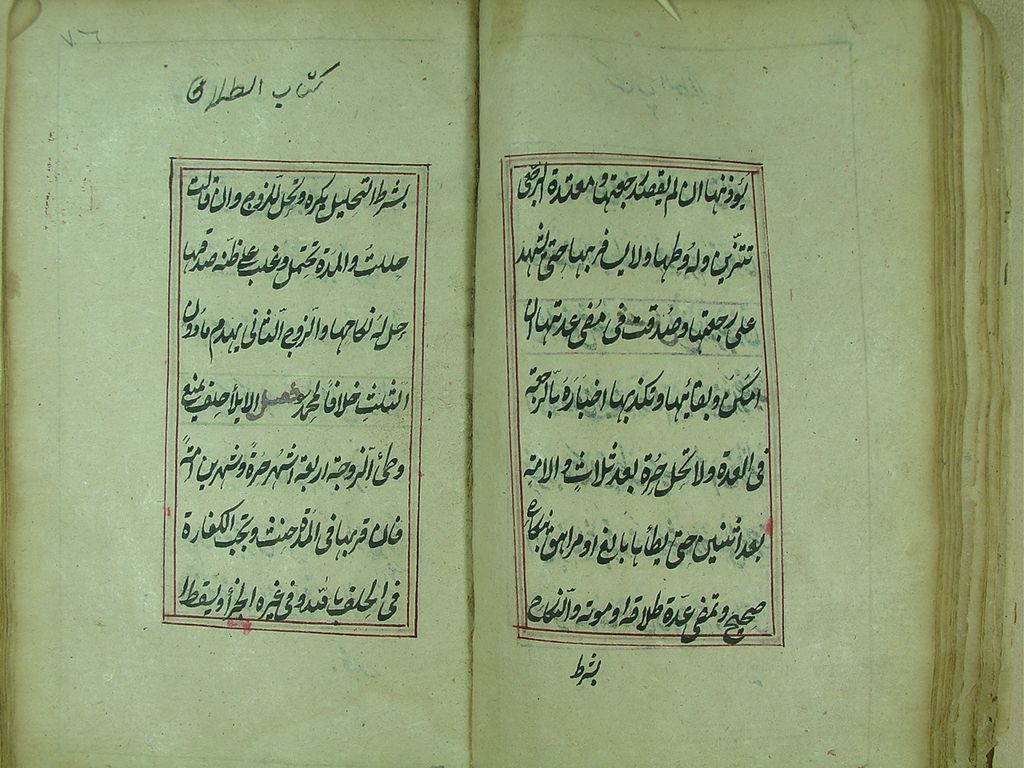 يؤذنها ان لم يقصد رجعتها ومعتدة الرجعى
تتزين وله وطها ولا يسافر بها حتى يشهد
على رجعتها وصدقت فى مضى عدتها ان
امكن وبقائها وتكذيبها اخباره بالرجعة
فى العدة ولا تحل حرة بعد ثلاث والامة
بعد اثنتين حتى يطأها بالغ او مراهق بنكاح
صحيح وتمضى عدة طلاقه او موته والنكاح
بشرط
٧٦
كتاب الطلاق
بشرط التحليل يكره وتحل للزوج وان قالت
حللت والمدة تحتمل وغلب على ظنه صدقها
حل له نكاحها والزوج الثانى يهدم مادون
الثلث خلافا لمحمد فصل الايلأ حلف يمنع
وطئ الزوجة اربعة اشهر حرة وشهرين امة
فان قربها فى المدة حنث وتجب الكفارة
فى الحلف بالله وفى غيره الجزأ ويسقط